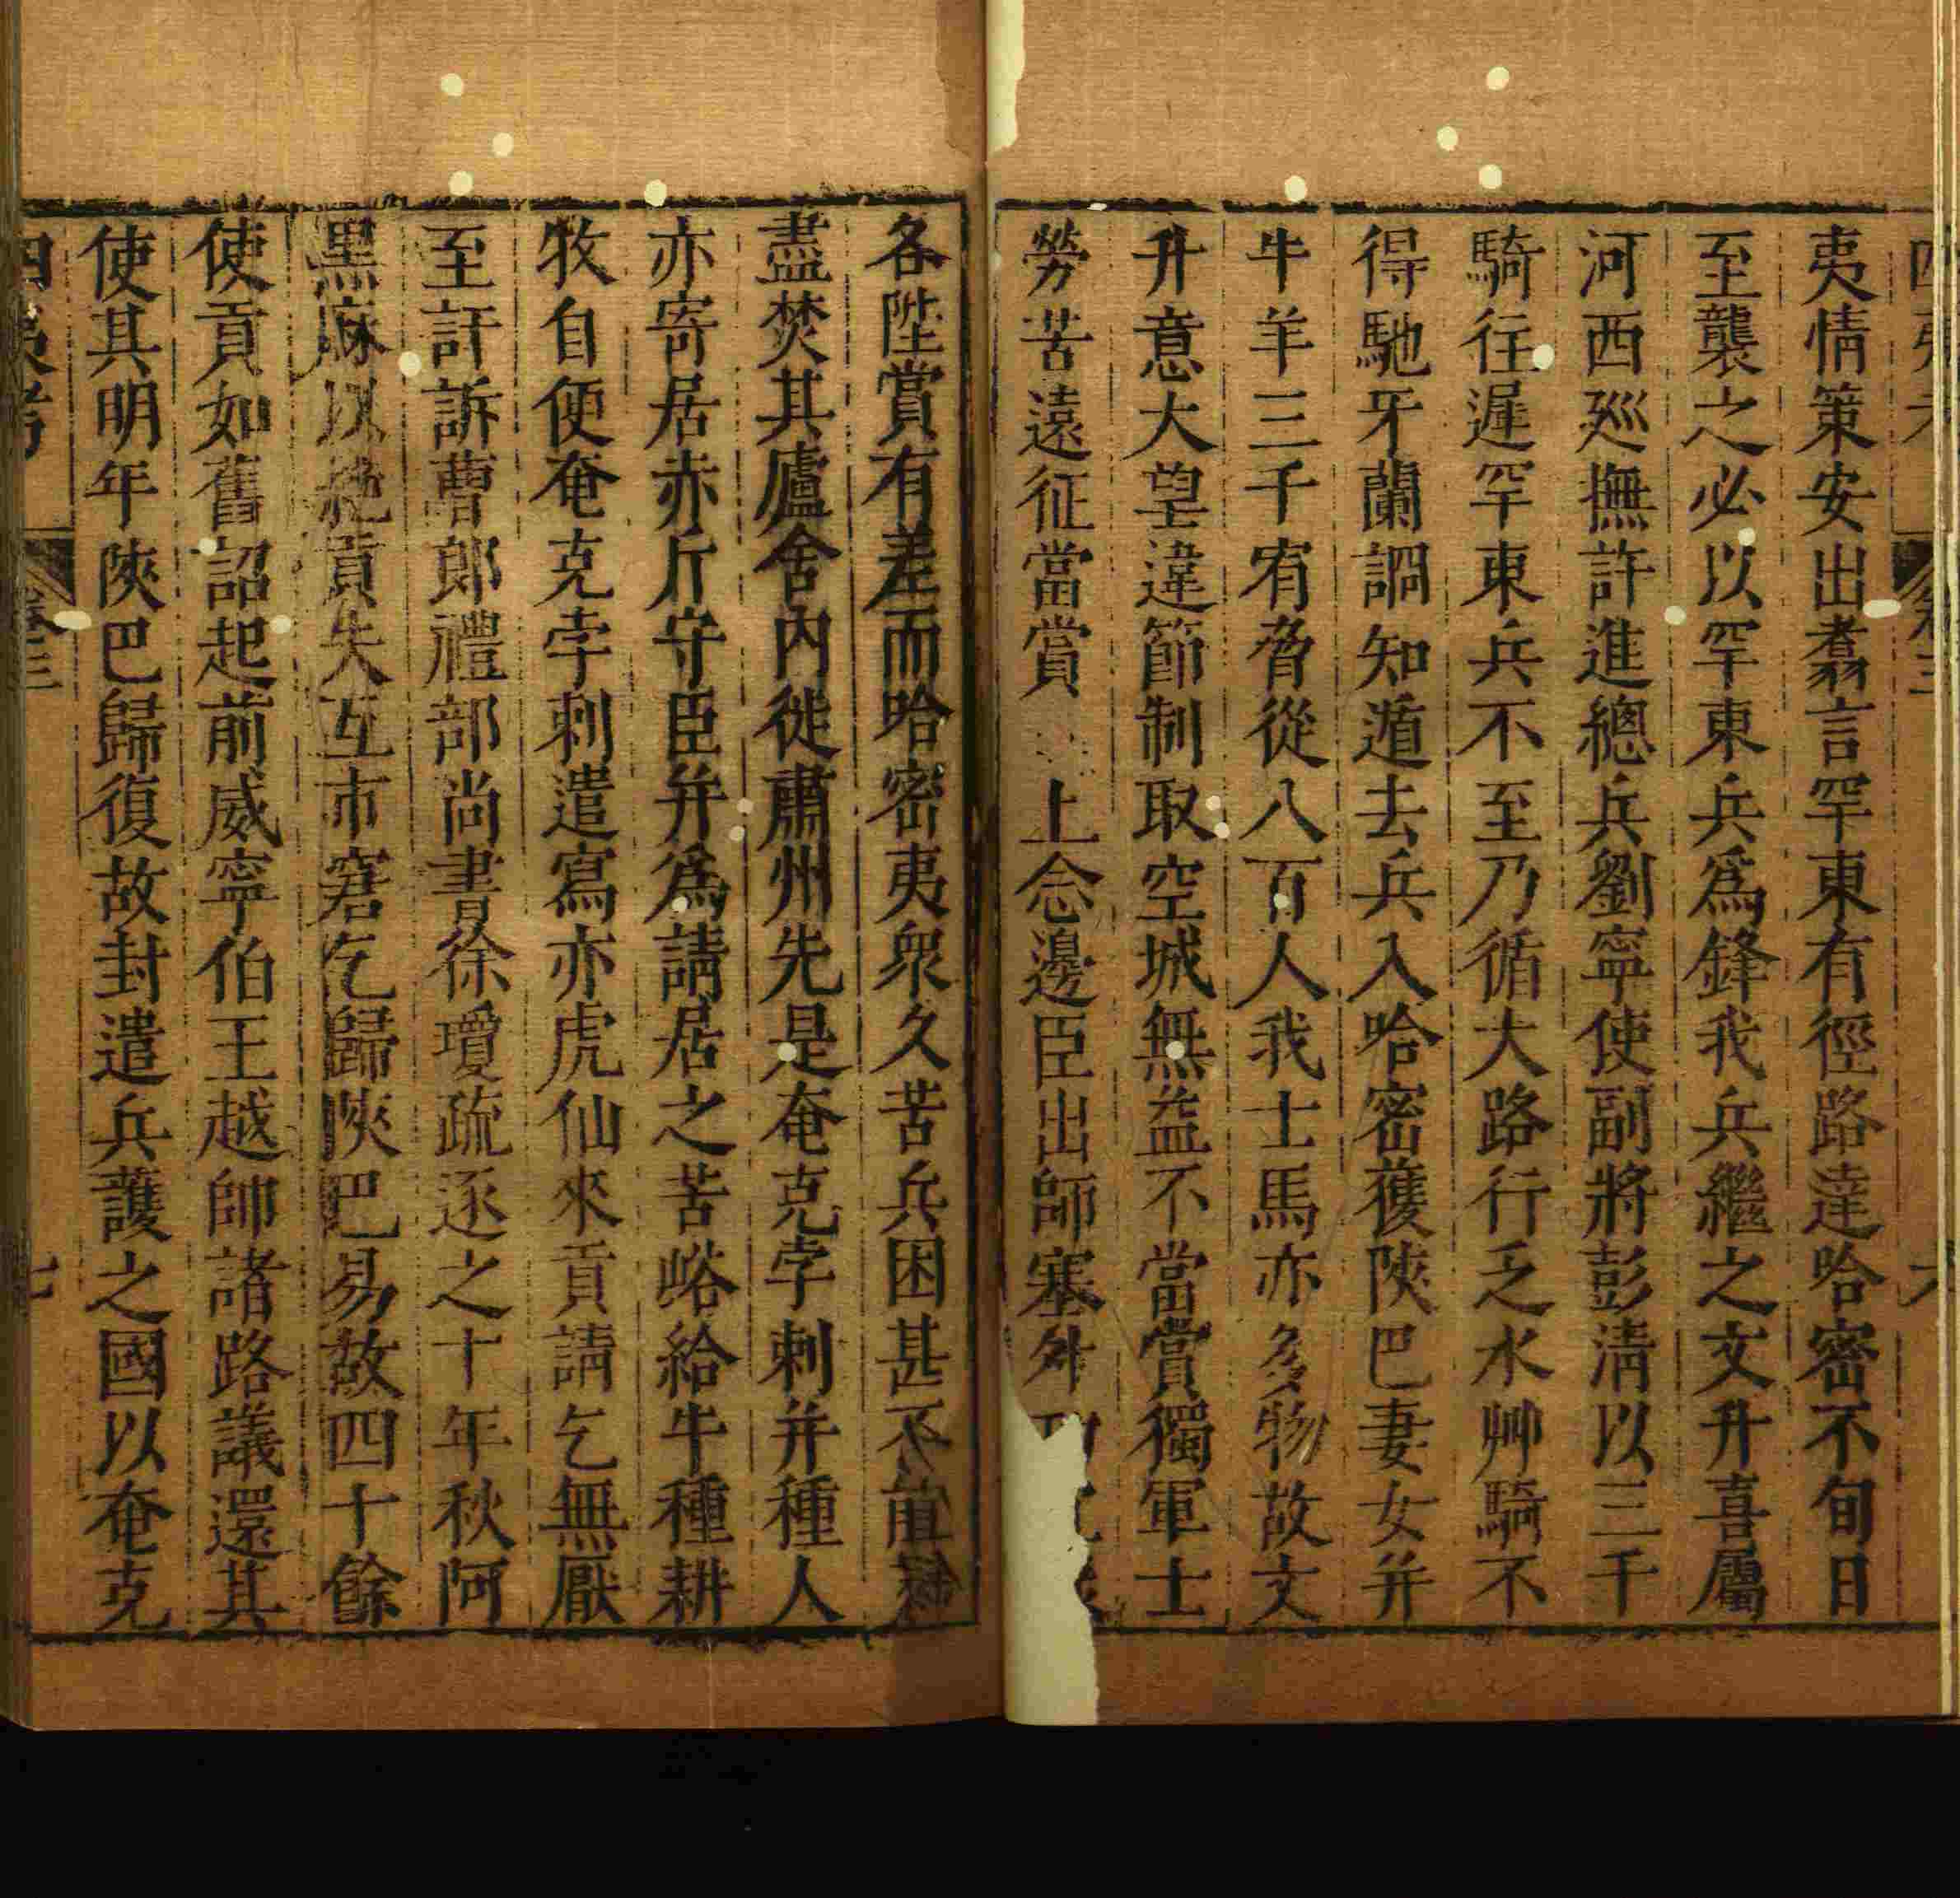 夷情策安出翥言罕東有徑路達哈密不旬日
至襲之必以罕東兵爲鋒我兵繼之文升喜屬
河西廵撫許進總兵劉寧使副將彭清以三千
騎往遲罕東兵不至乃循大路行乏水艸騎不
得馳牙蘭詗知遁去兵入哈密獲陝巴妻女并
牛羊三千宥脅從八百人我士馬亦多物故文
升意大望違節制取空城無益不當賞獨軍士
勞苦遠征當賞 上念邊臣出師塞外
各陞賞有差而哈密夷衆久苦兵困甚不
盡焚其廬舍內徙肅州先是奄克孛剌并種人
亦寄居赤斤守臣并爲請居之苦峪給牛種耕
牧自便奄克孛剌遣寫亦虎仙來貢請乞無厭
至訐訴曹郎禮部尚書徐瓊疏逐之十年秋阿
黑麻以絶貢失互市窘乞歸陝巴易故四十餘
使貢如舊詔起前威寧伯王越師諸路議還其
使其明年陝巴歸復故封遣兵護之國以奄克
四夷考 卷三 七